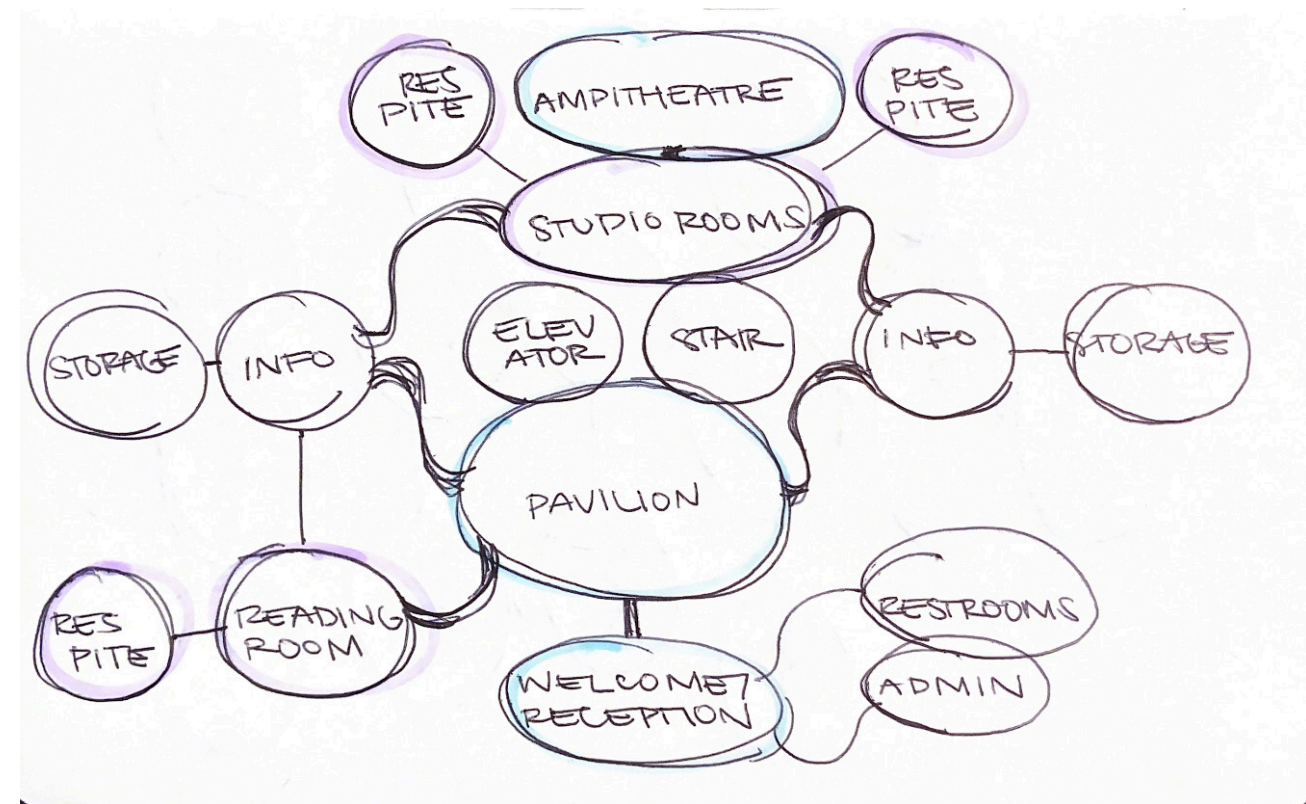 RES
PITE
AMPITHEATRE
RES
PITE
STUDIO ROOMS
STORAGE
INFO
ELEV
ATOR
STAIR
INFO
STORAGE
PAVILION
RES
PITE
READING
ROOM
WELCOME/
RECEPTION
RESTROOMS
ADMIN